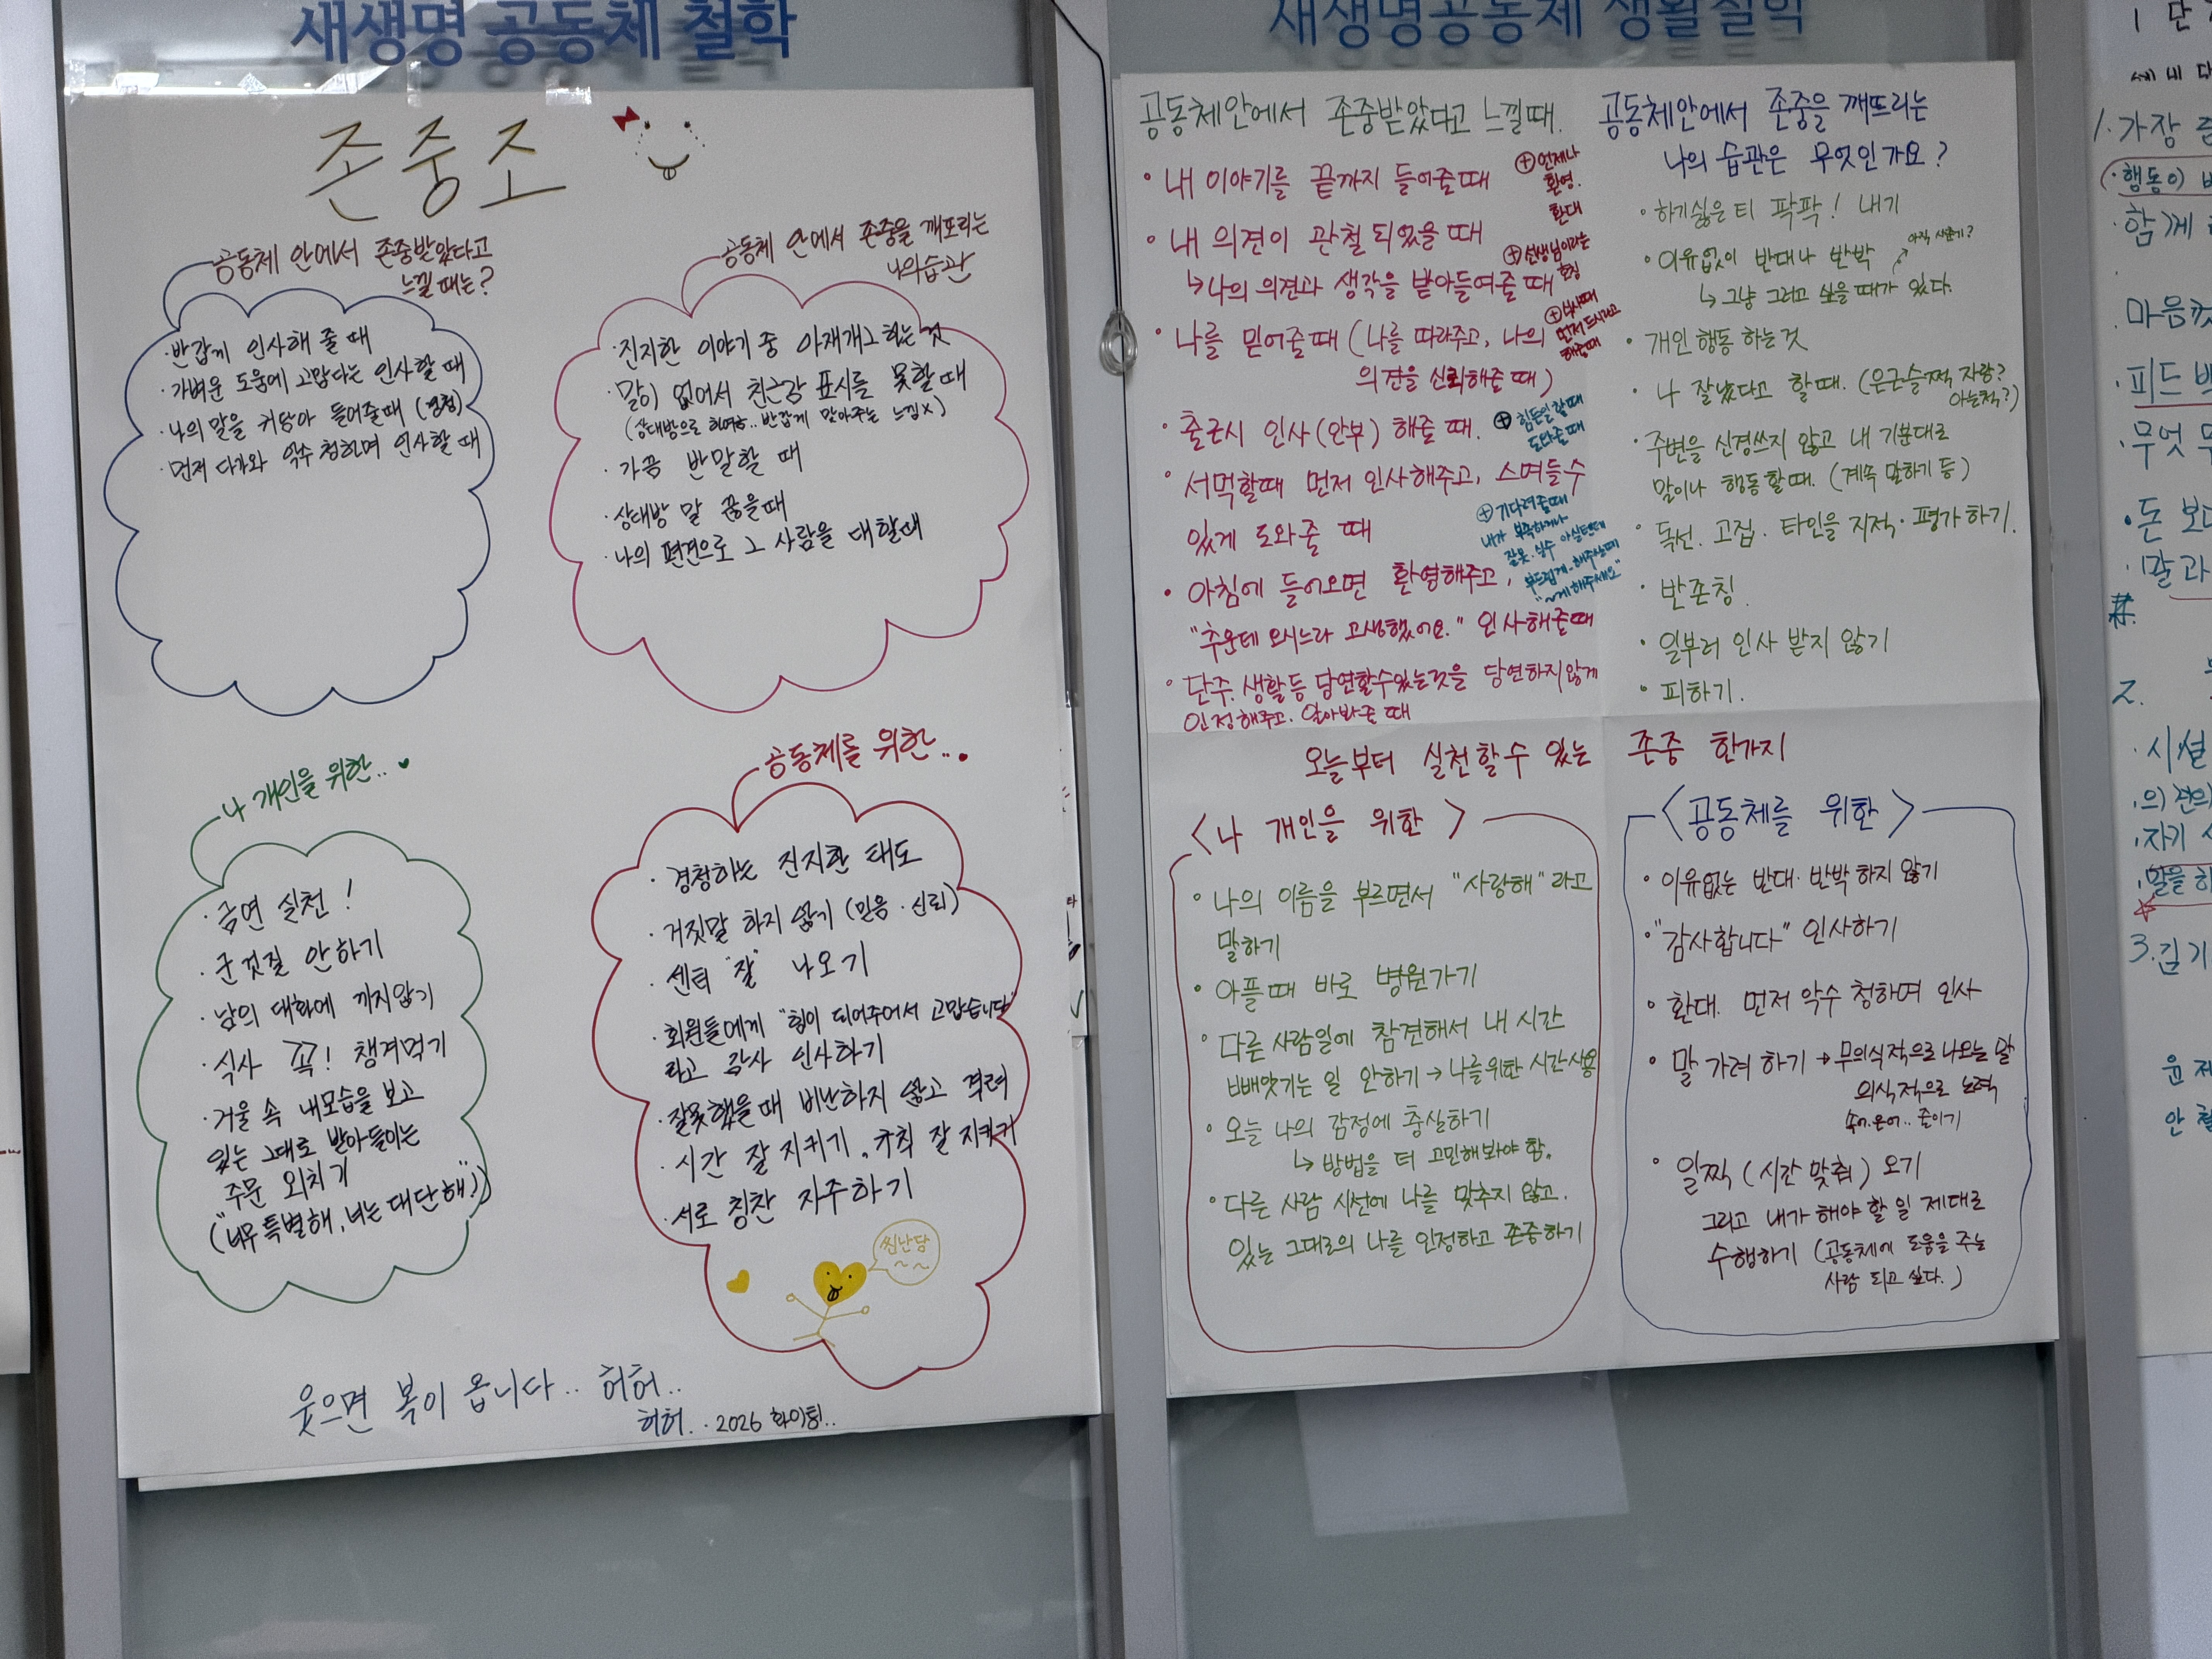 새생명 공동체 철학
존중조
공동체 안에서 존중받았다고
느낄 때는?
· 반갑게 인사해 줄 때
· 가벼운 도움에 고맙다는 인사할 때
· 나의 말을 귀담아 들어줄때 (경청)
· 먼저 다가와 악수 청하며 인사할 때
공동체 안에서 존중을 깨트리는
나의 습관
· 진지한 이야기 중 아재개그 하는 것
· 말이 없어서 친근감 표시를 못할 때
(상대방으로 하여금.. 반갑게 맞아주는 느낌X)
· 가끔 반말할 때
· 상대방 말 끊을때
· 나의 편견으로 그 사람을 대할때
나 개인을 위한..
· 금연 실천!
· 군것질 안하기
· 남의 대화에 끼지않기
· 식사 꼭! 챙겨먹기
· 거울 속 내모습을 보고
있는 그대로 받아들이는
주문 외치기
("너무 특별해, 너는 대단해!")
공동체를 위한...
· 경청하는 진지한 태도
· 거짓말 하지 않기 (믿음·신뢰)
· 센터 "잘" 나오기
· 회원들에게 "힘이 되어주어서 고맙습니다"
라고 감사 인사하기
· 잘못했을때 비난하지 않고 격려
· 시간 잘 지키기, 규칙 잘 지키기
· 서로 칭찬 자주하기
씐난당
~~
웃으면 복이 옵니다.. 허허..
허허.. 2026 화이팅..
새생명공동체 생활철학
공동체안에서 존중받았다고 느낄때.
• 내 이야기를 끝까지 들어줄때
⊕ 언제나
환영.
환대
• 내 의견이 관철 되었을 때
↳ 나의 의견과 생각을 받아들여줄 때
⊕ 선생님이라는
호칭
• 나를 믿어줄때 (나를 따라주고, 나의
의견을 신뢰해줄 때)
⊕ 식사때
먼저 드시라고
해줄때
• 출근시 인사(안부) 해줄 때.
⊕ 힘든일 할때
도와줄때
• 서먹할때 먼저 인사해주고, 스며들수
있게 도와줄 때
⊕ 기다려줄때
내가 부족하거나
잘못·실수 하실텐데
부드럽게.. 해주실때
"~게 해주세요"
• 아침에 들어오면 환영해주고,
"추운데 오시느라 고생했어요." 인사해줄때
• 단주. 생활등 당연할수있는것을 당연하지않게
인정해주고. 알아봐줄 때
공동체안에서 존중을 깨뜨리는
나의 습관은 무엇인가요?
• 하기싫은 티 팍팍! 내기
• 이유없이 반대나 반박
아직 사춘기?
↳ 그냥 그러고 싶을 때가 있다.
• 개인행동 하는것
• 나 잘났다고 할 때. (은근슬쩍 자랑?
아는척?)
• 주변을 신경쓰지 않고 내 기분대로
말이나 행동할때. (계속 말하기 등)
• 독선. 고집. 타인을 지적·평가하기.
• 반존칭.
• 일부러 인사 받지 않기
• 피하기.
오늘부터 실천할수 있는 존중 한가지
<나 개인을 위한>
• 나의 이름을 부르면서 "사랑해"라고
말하기
• 아플때 바로 병원가기
• 다른 사람일에 참견해서 내 시간
빼앗기는 일 안하기 → 나를위한 시간사용
• 오늘 나의 감정에 충실하기
↳ 방법을 더 고민해봐야 함.
• 다른 사람 시선에 나를 맞추지 않고.
있는 그대로의 나를 인정하고 존중하기
<공동체를 위한>
• 이유없는 반대·반박 하지 않기
• "감사합니다" 인사하기
• 환대. 먼저 악수 청하며 인사
• 말 가려 하기 → 무의식적으로 나오는 말
의식적으로 노력
속어.은어.. 줄이기
• 일찍 (시간 맞춰) 오기
그리고 내가 해야 할 일 제대로
수행하기 (공동체에 도움을 주는
사람 되고 싶다.)
1 단
세 네 다
1. 가장
(·행동이
· 함께
· 마음껏
· 피드백
· 무엇
• 돈 보다
· 말과
2.
· 시설
· 의견의
· 자기
· 말을 하
3. 김기
윤 제
안 철